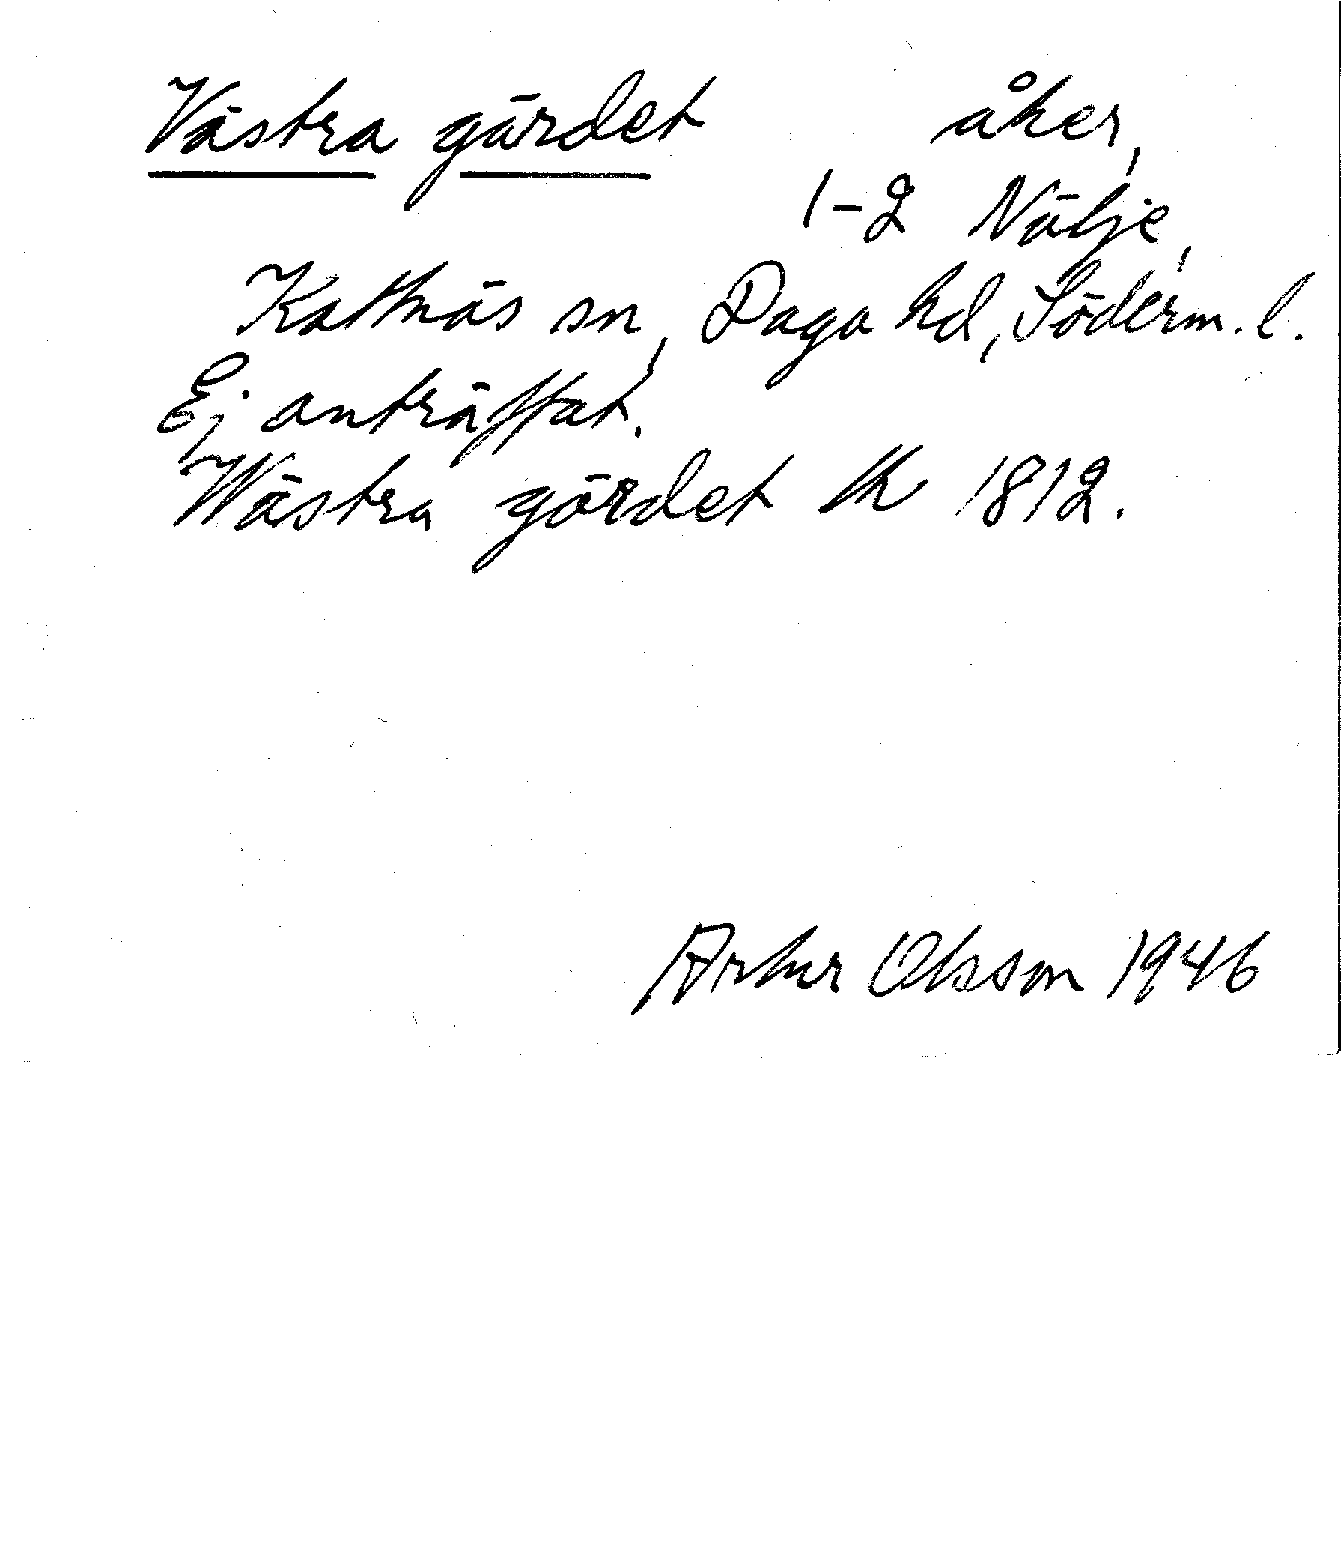 Västra gärdet åker,
1-2 Nälje,
Kattnäs sn, Daga hd, Söderm. l.
Ej anträffat.
Wästra gärdet lk 1812.
Artur Olsson 1946